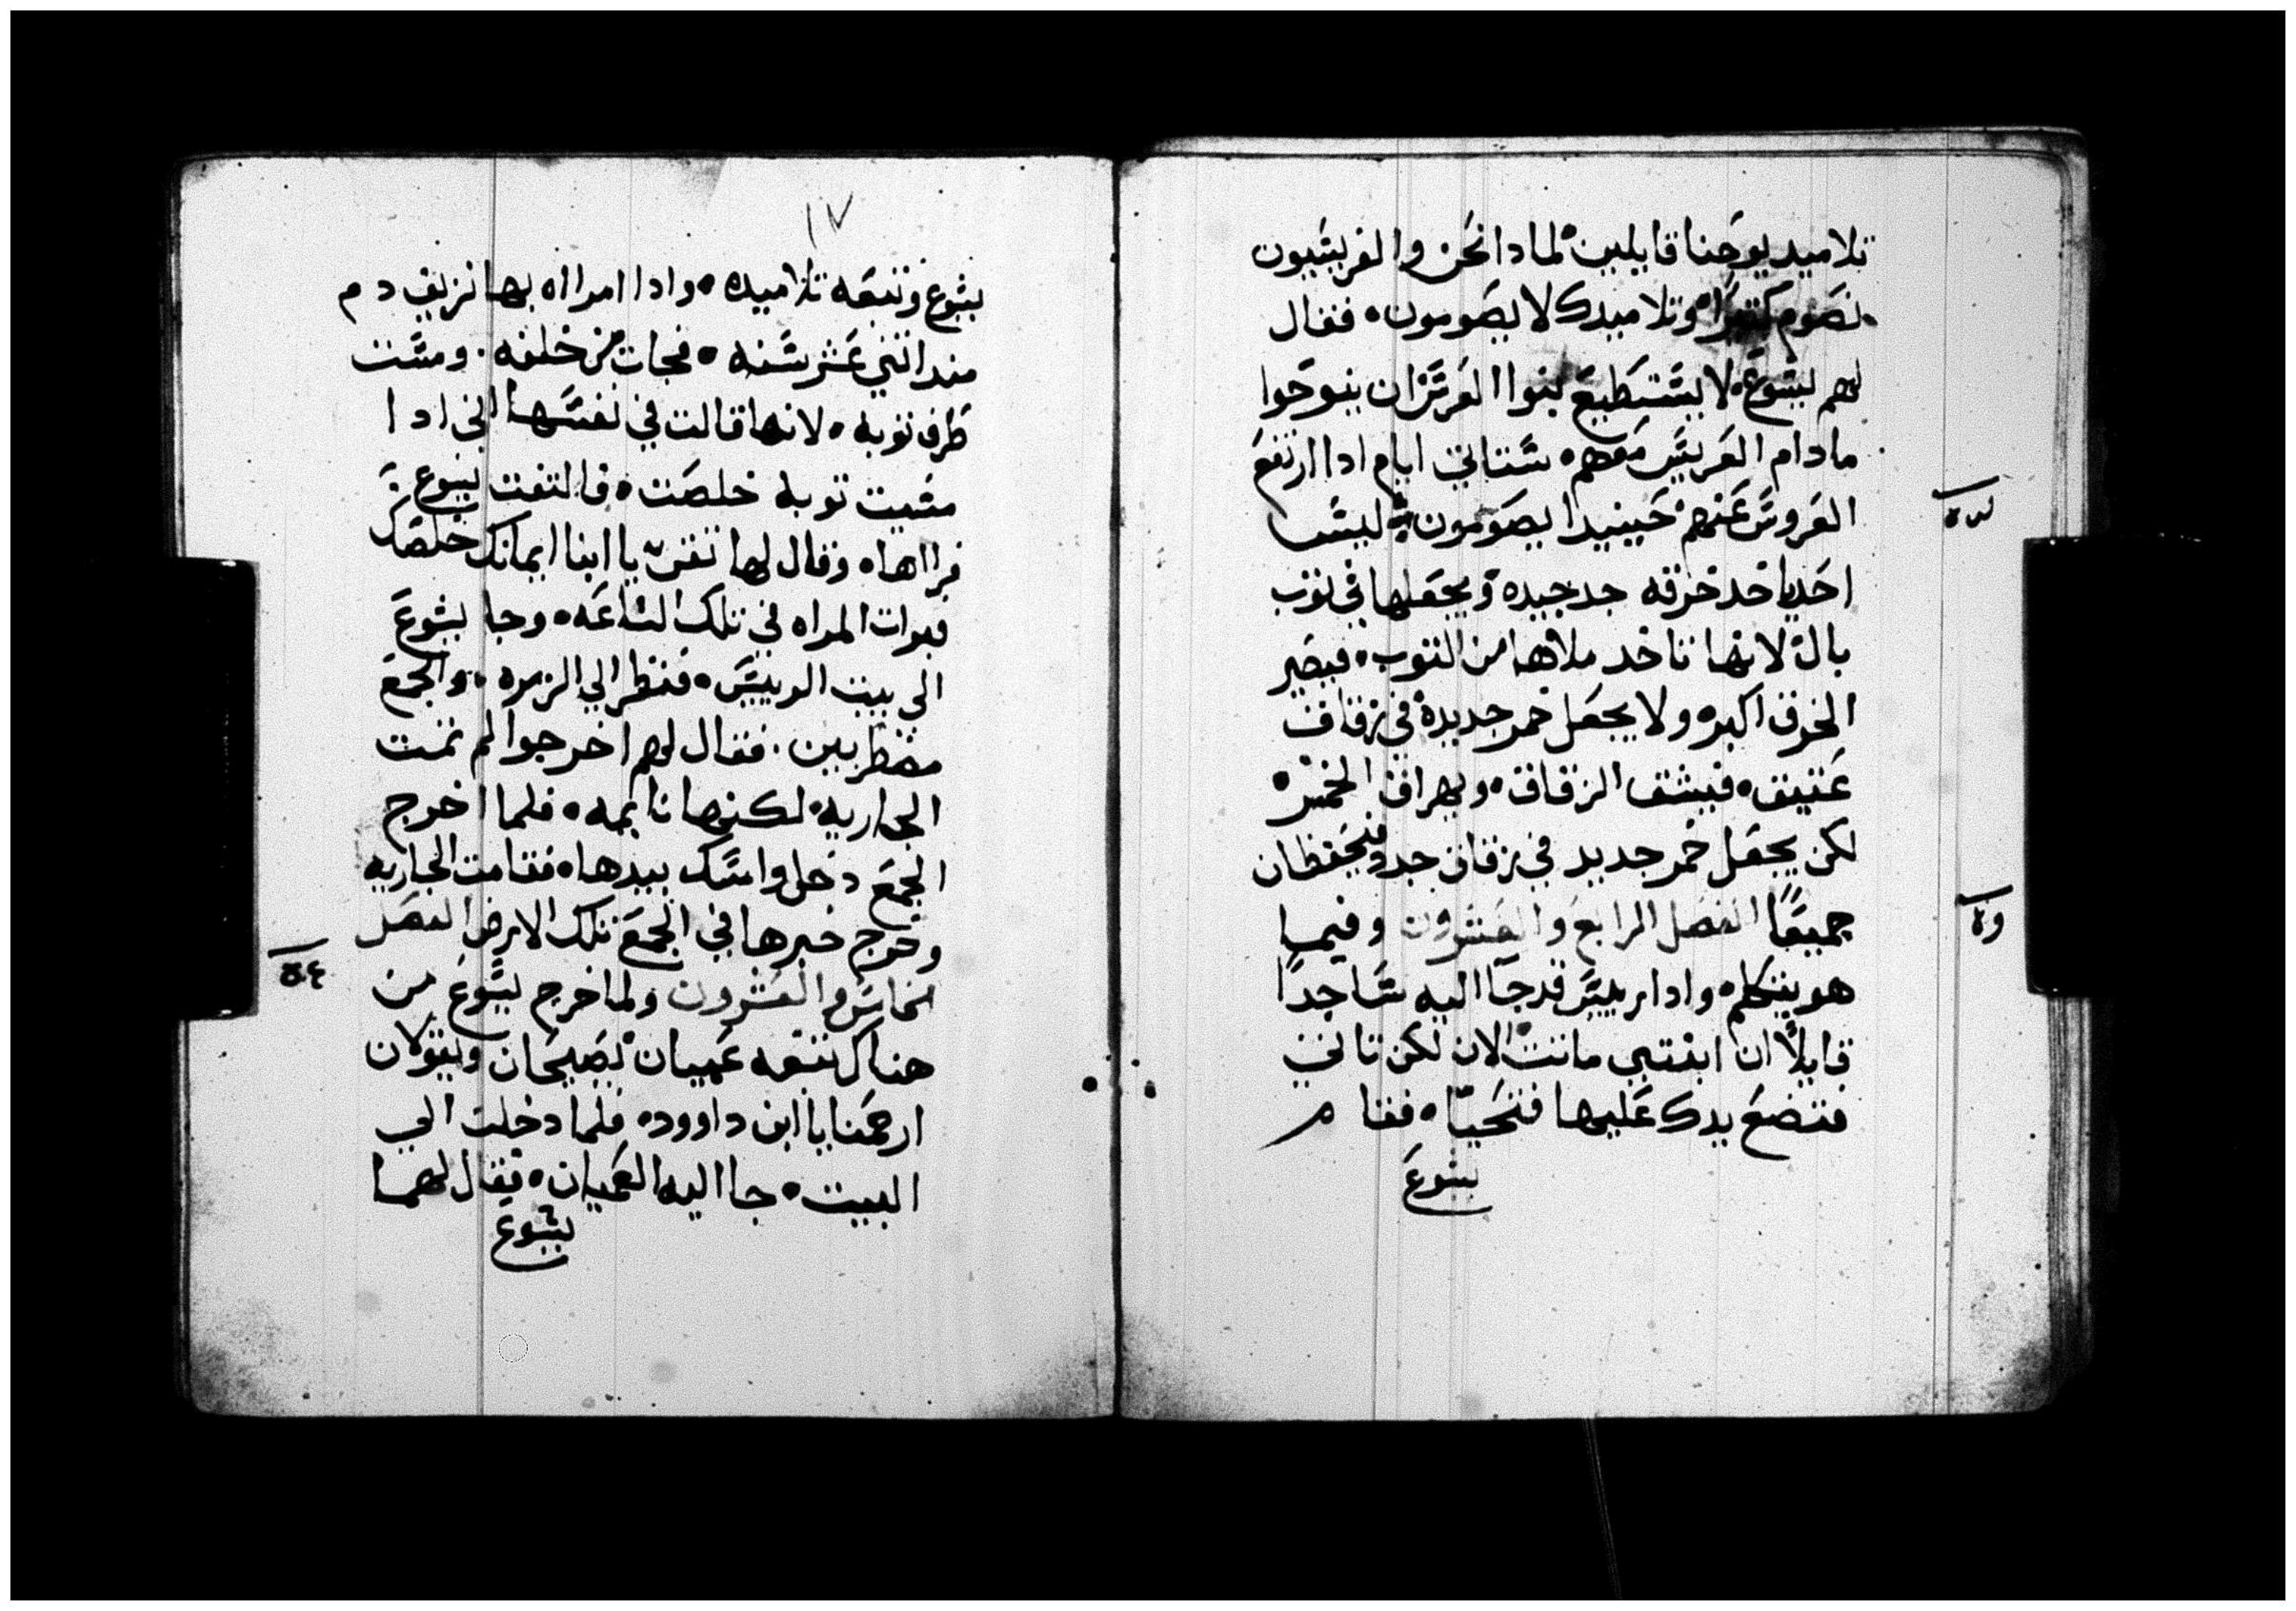 تلاميد يوحنا قايلين لمادا نحن والفريسيون
نصوم كتيرا وتلاميدك لا يصومون فقال
لهم يسوع لا يستطيع بنوا العرس ان ينوحوا
ما دام العريس معهم ستاتي ايام ادا ارتفع
العروس عنهم حينيدا يصومون ليس
احد ياخد خرقه جد جيده ويجعلها في توب
بال لانها تاخد ملاها من التوب فيصير
الخرق اكبر ولا يجعل خمر جديدة في زقاق
عتيق فينشف الزقاق ويهراق الخمر
لكن يجعل خمر جديد في زقاق جدد فيحفظان
جميعًا الفصل الرابع والعشرون وفيما
هو يتكلم وادا رييس قد جا اليه ساجدًا
قايلاً ان ابنتي ماتت الان لكن تاتي
فتضع يدك عليها فتحيا فقام
يسوع
١٧
يشوع وتبعه تلاميده وادا امراه بها نزيف دم
مند اتني عشر سنه فجات من خلفه ومست
طرف توبه لانها قالت في نفسها اني ادا
مسيت توبه خلصت فالتفت يسوع
فراها وقال لها تقي يا ابنا ايمانك خلصك
فبرات المراه في تلك الساعه وجا يشوع
الي بيت الرييس فنظر الي الزمره والجمع
مضطربين فقال لهم اخرجوا لم تمت
الجاريه لكنها نايمه فلما اخرج
الجمع دخل وامسك بيدها فقامت الجاريه
وخرج خبرها في الجمع تلك الارض الفصل
الخامس والعشرون ولما خرج يسوع من
هناك تبعه عميان يصيحان ويقولان
ارحمنا يا ابن داوود فلما دخلت الي
البيت جا اليه العميان فقال لهما
يشوع